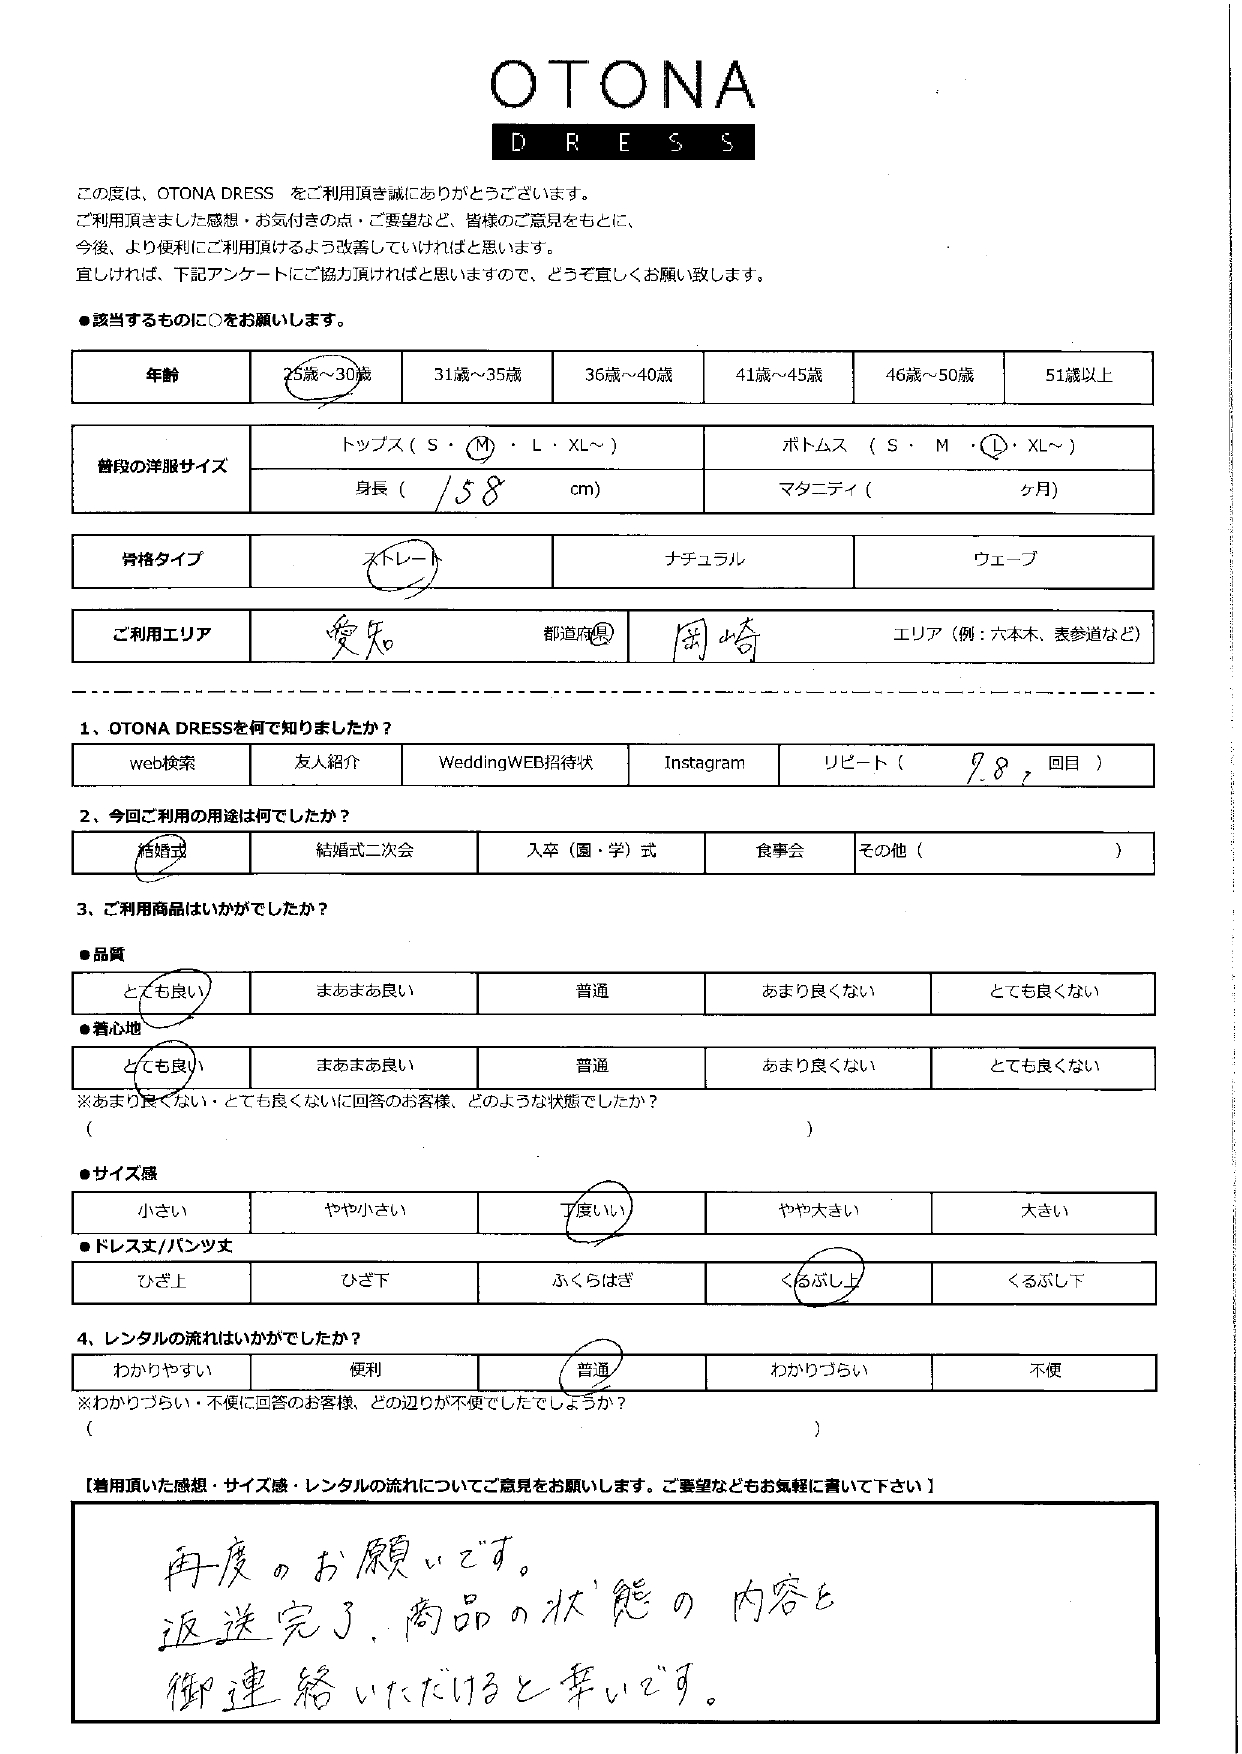 OTONA
DRESS
この度は、OTONA DRESS をご利用頂き誠にありがとうございます。
ご利用頂きました感想・お気付きの点・ご要望など、皆様のご意見をもとに、
今後、より便利にご利用頂けるよう改善していければと思います。
宜しければ、下記アンケートにご協力頂ければと思いますので、どうぞ宜しくお願い致します。
●該当するものに○をお願いします。
年齢 25歳～30歳 31歳～35歳 36歳～40歳 41歳～45歳 46歳～50歳 51歳以上
普段の洋服サイズ トップス ( S ・ M ・ L ・ XL～ ) ボトムス ( S ・ M ・ L ・ XL～ )
身長 ( 158 cm) マタニティ ( ヶ月)
骨格タイプ ストレート ナチュラル ウェーブ
ご利用エリア 愛知 都道府県 岡崎 エリア（例：六本木、表参道など）
1、OTONA DRESSを何で知りましたか？
web検索 友人紹介 WeddingWEB招待状 Instagram リピート ( 7.8 , 回目 )
2、今回ご利用の用途は何でしたか？
結婚式 結婚式二次会 入卒（園・学）式 食事会 その他 ( )
3、ご利用商品はいかがでしたか？
●品質
とても良い まあまあ良い 普通 あまり良くない とても良くない
●着心地
とても良い まあまあ良い 普通 あまり良くない とても良くない
※あまり良くない・とても良くないに回答のお客様、どのような状態でしたか？
( )
●サイズ感
小さい やや小さい 丁度いい やや大きい 大きい
●ドレス丈/パンツ丈
ひざ上 ひざ下 ふくらはぎ くるぶし上 くるぶし下
4、レンタルの流れはいかがでしたか？
わかりやすい 便利 普通 わかりづらい 不便
※わかりづらい・不便に回答のお客様、どの辺りが不便でしたでしょうか？
( )
【着用頂いた感想・サイズ感・レンタルの流れについてご意見をお願いします。ご要望などもお気軽に書いて下さい】
再度のお願いです。
返送完了、商品の状態の内容を
御連絡いただけると幸いです。